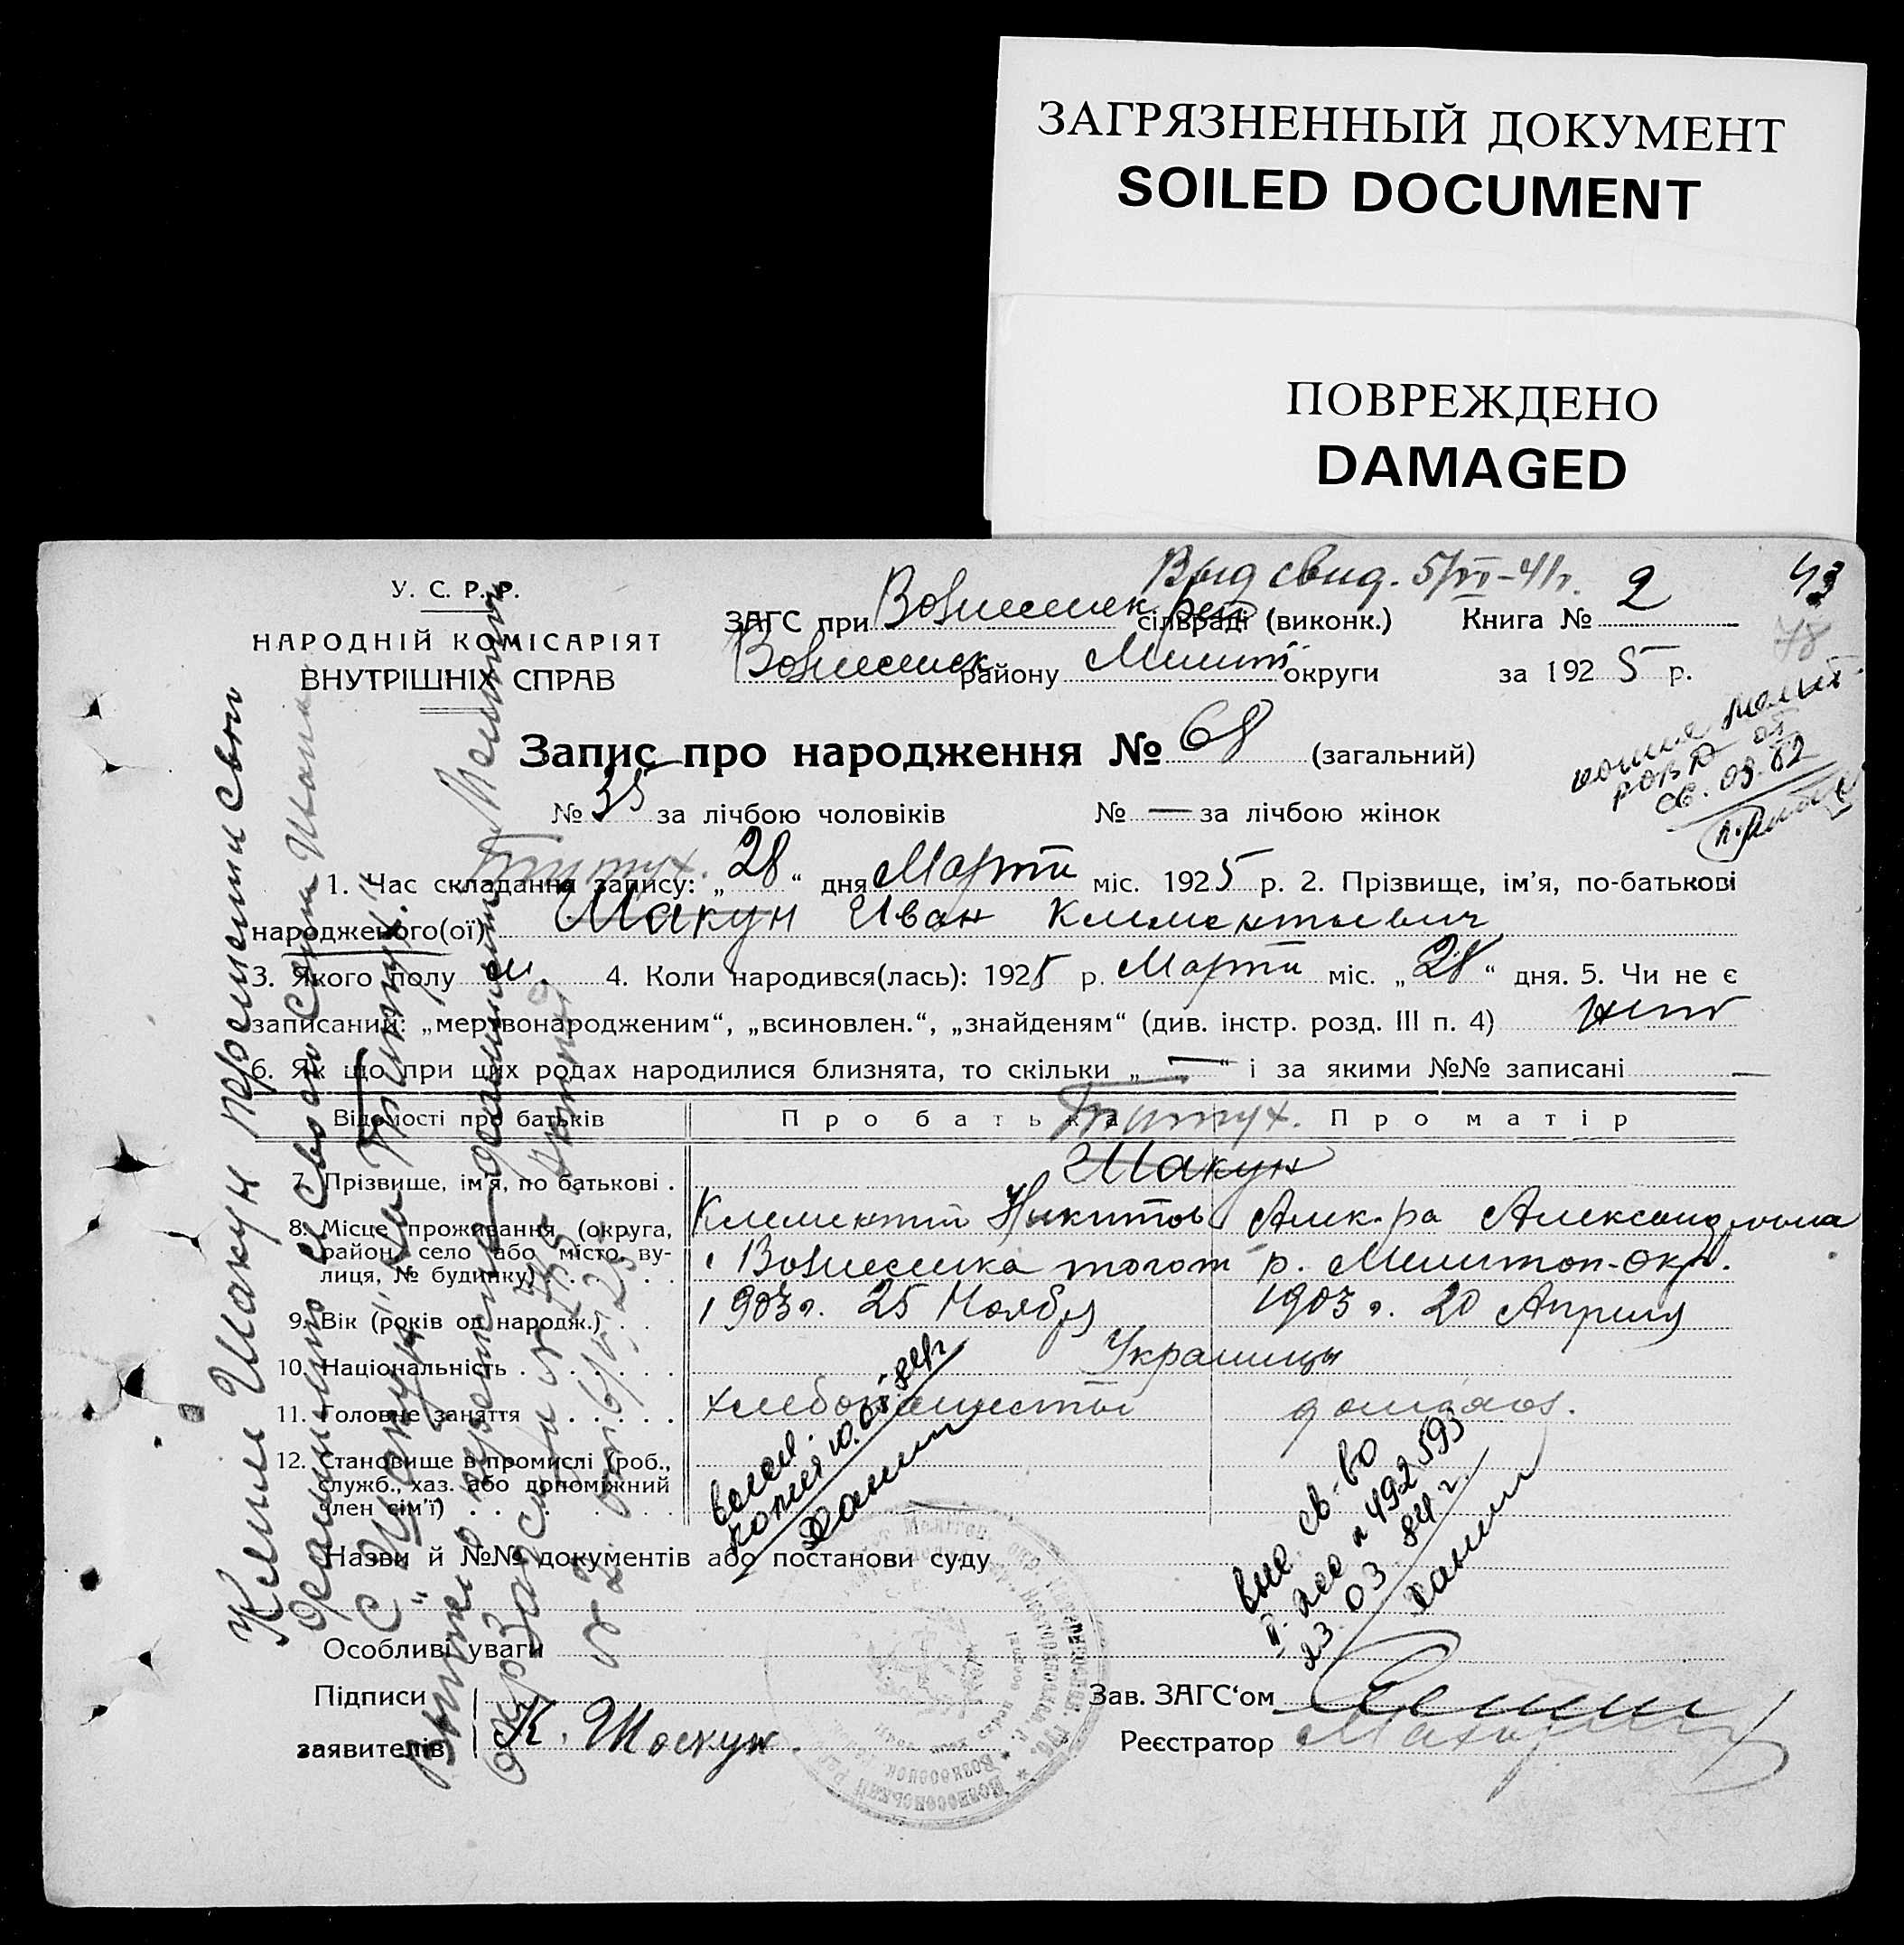 ЗАГРЯЗНЕННЫЙ ДОКУМЕНТ
SOILED DOCUMENT
ПОВРЕЖДЕНО
DAMAGED
Выд свид. 5/VI-41г.
43
78
У. С. Р. Р.
НАРОДНІЙ КОМІСАРІЯТ
ВНУТРІШНІХ СПРАВ
ЗАГС при Вознесенск. рай сільраді (виконк.) Книга № 2
Вознесенск району Мелит округи за 1925 р.
Запис про народження № 68 (загальний)
копия Мелит
РОВД от
св. 03.82
№ 35 за лічбою чоловіків № — за лічбою жінок
Титух.
1. Час складання запису: „28“ дня Марта міс. 1925 р. 2. Прізвище, ім’я, по-батькові
народженого(ої) Шакун Иван Климентьевич
3. Якого полу м. 4. Коли народився(лась): 1925 р. Марта міс. „28“ дня. 5. Чи не є
записаний: „мертвонародженим“, „всиновлен.“, „знайденям“ (див. інстр. розд. III п. 4) нет
6. Як що при цих родах народилися близнята, то скільки „—“ і за якими №№ записані —
Відомості про батьків Про батька Про матір
Титух.
Шакун
7. Прізвище, ім’я, по батькові .
Климентий Никитов Алек-ра Александровна
8. Місце проживання (округа, район, село або місто, вулиця, № будинку)
Вознесенка тогот р. Мелитоп-окр.
9. Вік (років од народж.) . . 1903 г. 25 Ноября 1903 г. 20 Апреля
10. Національність . . . . . . . Украинцы
11. Головне заняття . . . . . хлебопашество домохоз.
12. Становище в промислі (роб.,
служб., хаз. або допоміжний
член сім’ї) . . . . . . . .
копия 10.05.
Ханин
выс. св-во
п. № 492593
23.03.84 г.
Ханин
Назви й №№ документів або постанови суду
Особливі уваги
Підписи
заявителів К. Шокун.
Зав. ЗАГС‘ом
Реєстратор
Клим Шакун переменил свою
фамилию и своего сына Ивана
с „Шакун“ на „Титух“.